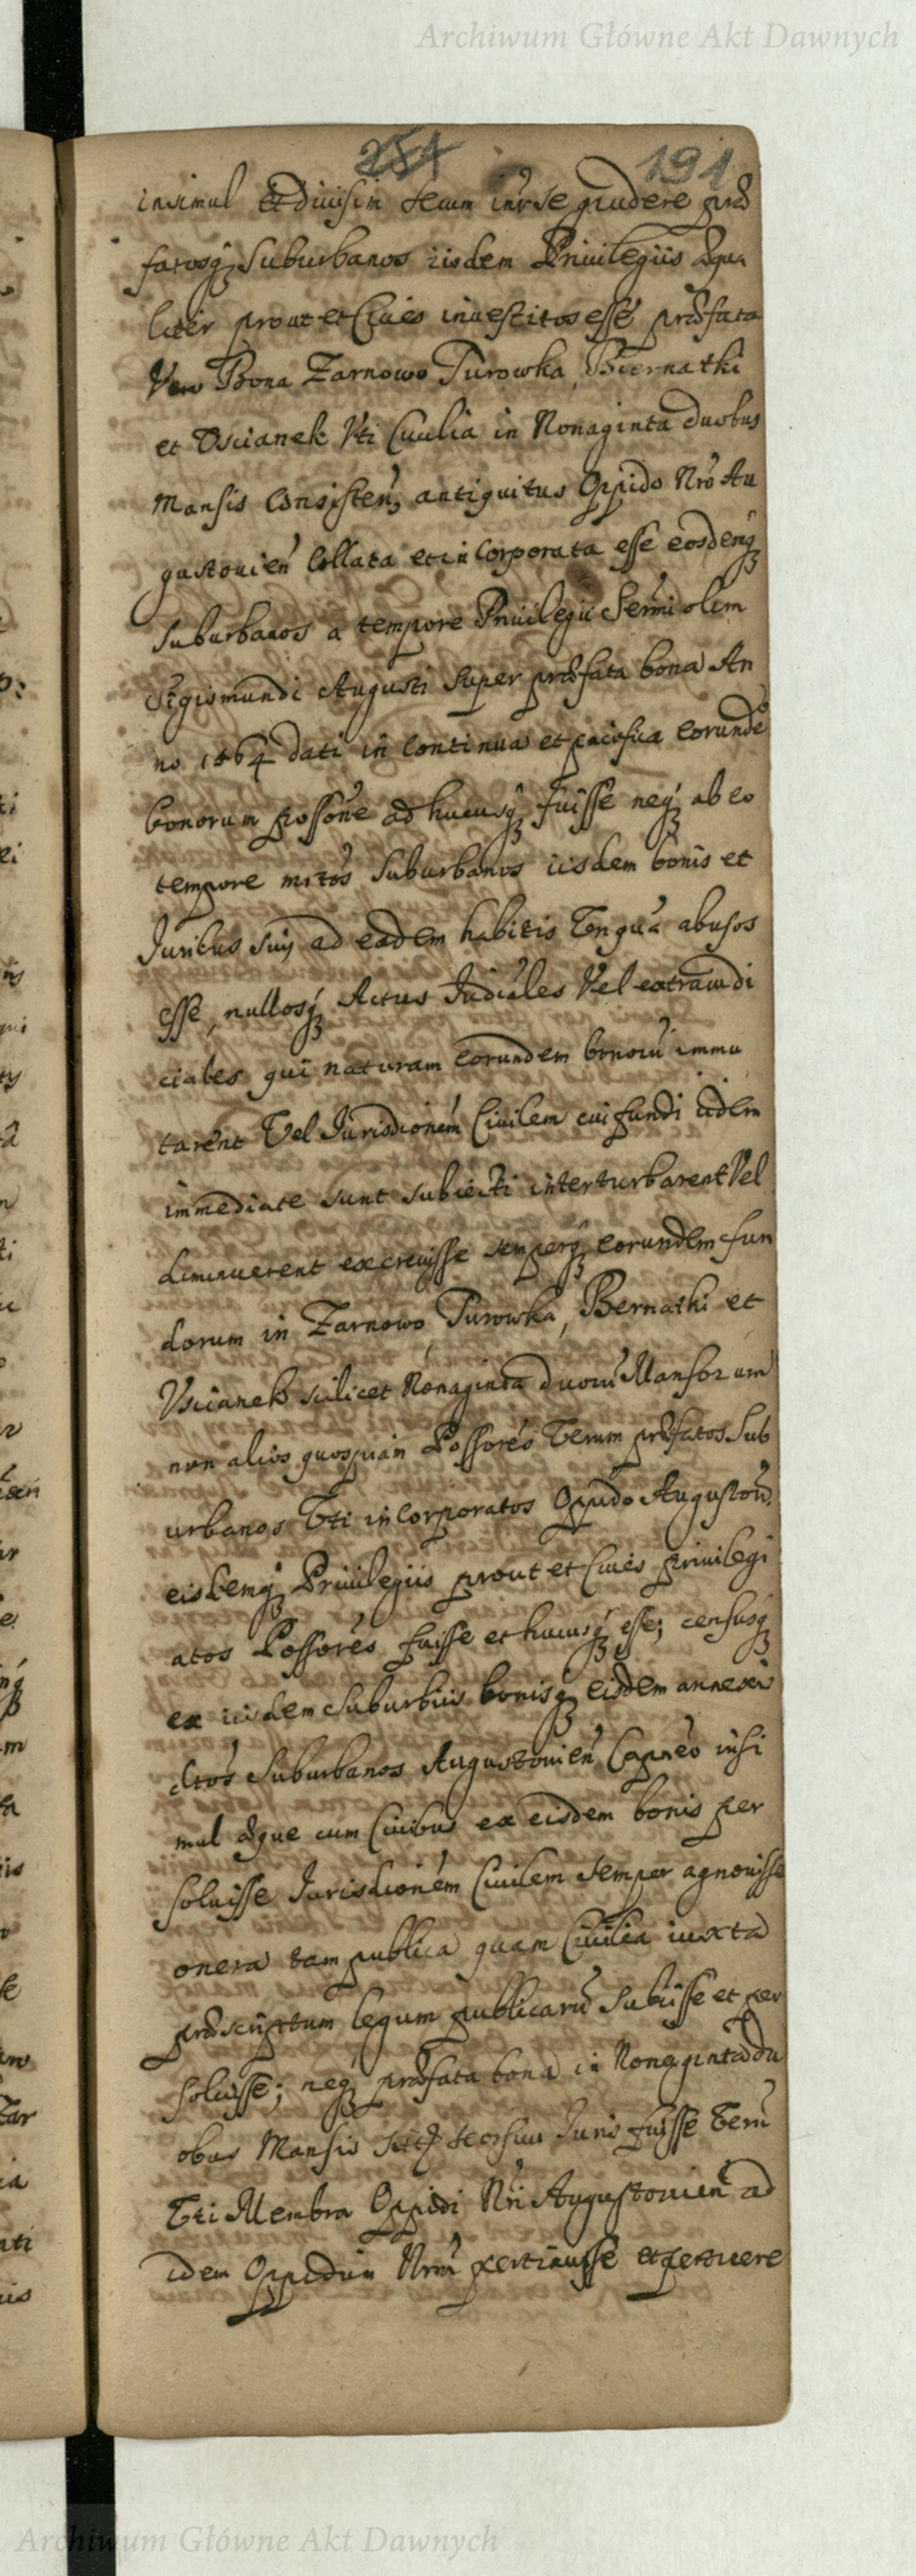 Archiwum Główne Akt Dawnych
251 191
insimul et divisim secum inter se gaudere præ
fatosq Suburbanos iisdem Privilegiis Æqua
liter prout et Cives investitos esse præfata
Vero Bona Zarnowo Turowka, Biernatki
et Uscianek Uti Civilia in Nonaginta duobus
Mansis Consisten, antiquitus Oppido Nro Au
gustovien Collata et incorporata esse eosdemq
Suburbanos a tempore Privilegii Sermi olim
Sigismundi Augusti super præfata bona An
no 1564 dati in continua et pacifica eorunde
bonorum possone ad hucusq fuisse neq ab eo
tempore mtos Suburbanos iisdem bonis et
Juribus suis ad eadem habitis Unqua abusos
esse, nullosq Actus Judiales Vel extraiudi
ciales qui naturam eorundem bonoru immu
tarent Vel Jurisdionem Civilem cui fundi iidem
immediate sunt subiecti interturbarent Vel
diminuerent excrevisse semperq eorundem fun
dorum in Zarnowo, Turowka, Bernatki et
Uscianek scilicet Nonaginta duoru Mansorum
non alios quospiam Possores Verum præfatos Sub
urbanos Uti incorporatos Oppido Augustovi
eisdemq Privilegiis prout et Cives privilegi
atos Possores fuisse et hucusq esse; censusq
ex iisdem Suburbiis bonisq eisdem annexis
dtos Suburbanos Augustovien Capneo insi
mul æque cum Civibus ex eisdem bonis per
solvisse Jurisdionem Civilem semper agnovisse
onera tam publica quam Civilia iuxta
præscriptum legum publicaru subiisse et per
solvisse; neq præfata bona in Nonaginta du
obus Mansis seorsivi Juris fuisse Veru
Uti Membra Oppidi Nri Augustovien ad
idem Oppidum Nrm pertinuisse et pertinere
Archiwum Główne Akt Dawnych